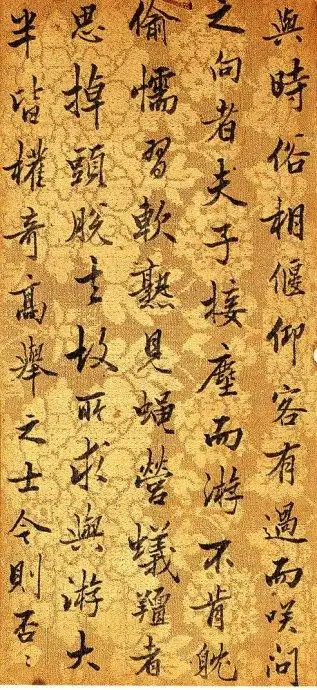 與時俗相偃仰客有過而咲問
之向者夫子接塵而游不肯躭
偷懦習軟熟見蠅營蟻羶者
思掉頭脫去故所求與游大
半皆權奇高舉之士今則否〻